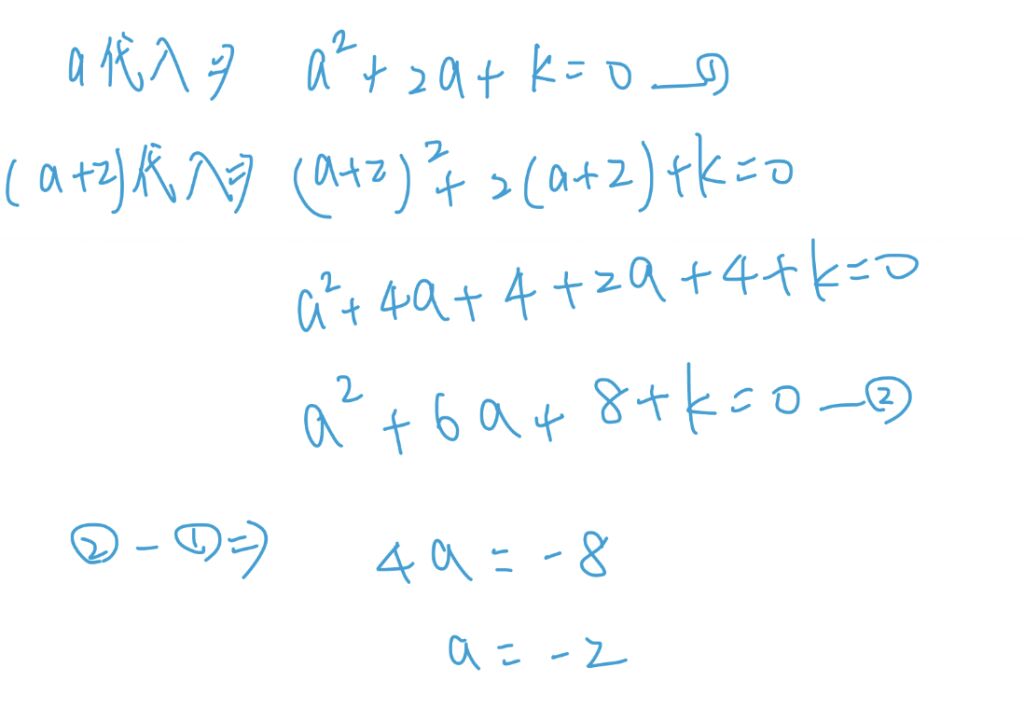 a代入⇒ a²+2a+k=0 —①
(a+2)代入⇒ (a+2)²+2(a+2)+k=0
a²+4a+4+2a+4+k=0
a²+6a+8+k=0 —②
②-①⇒ 4a=-8
a=-2